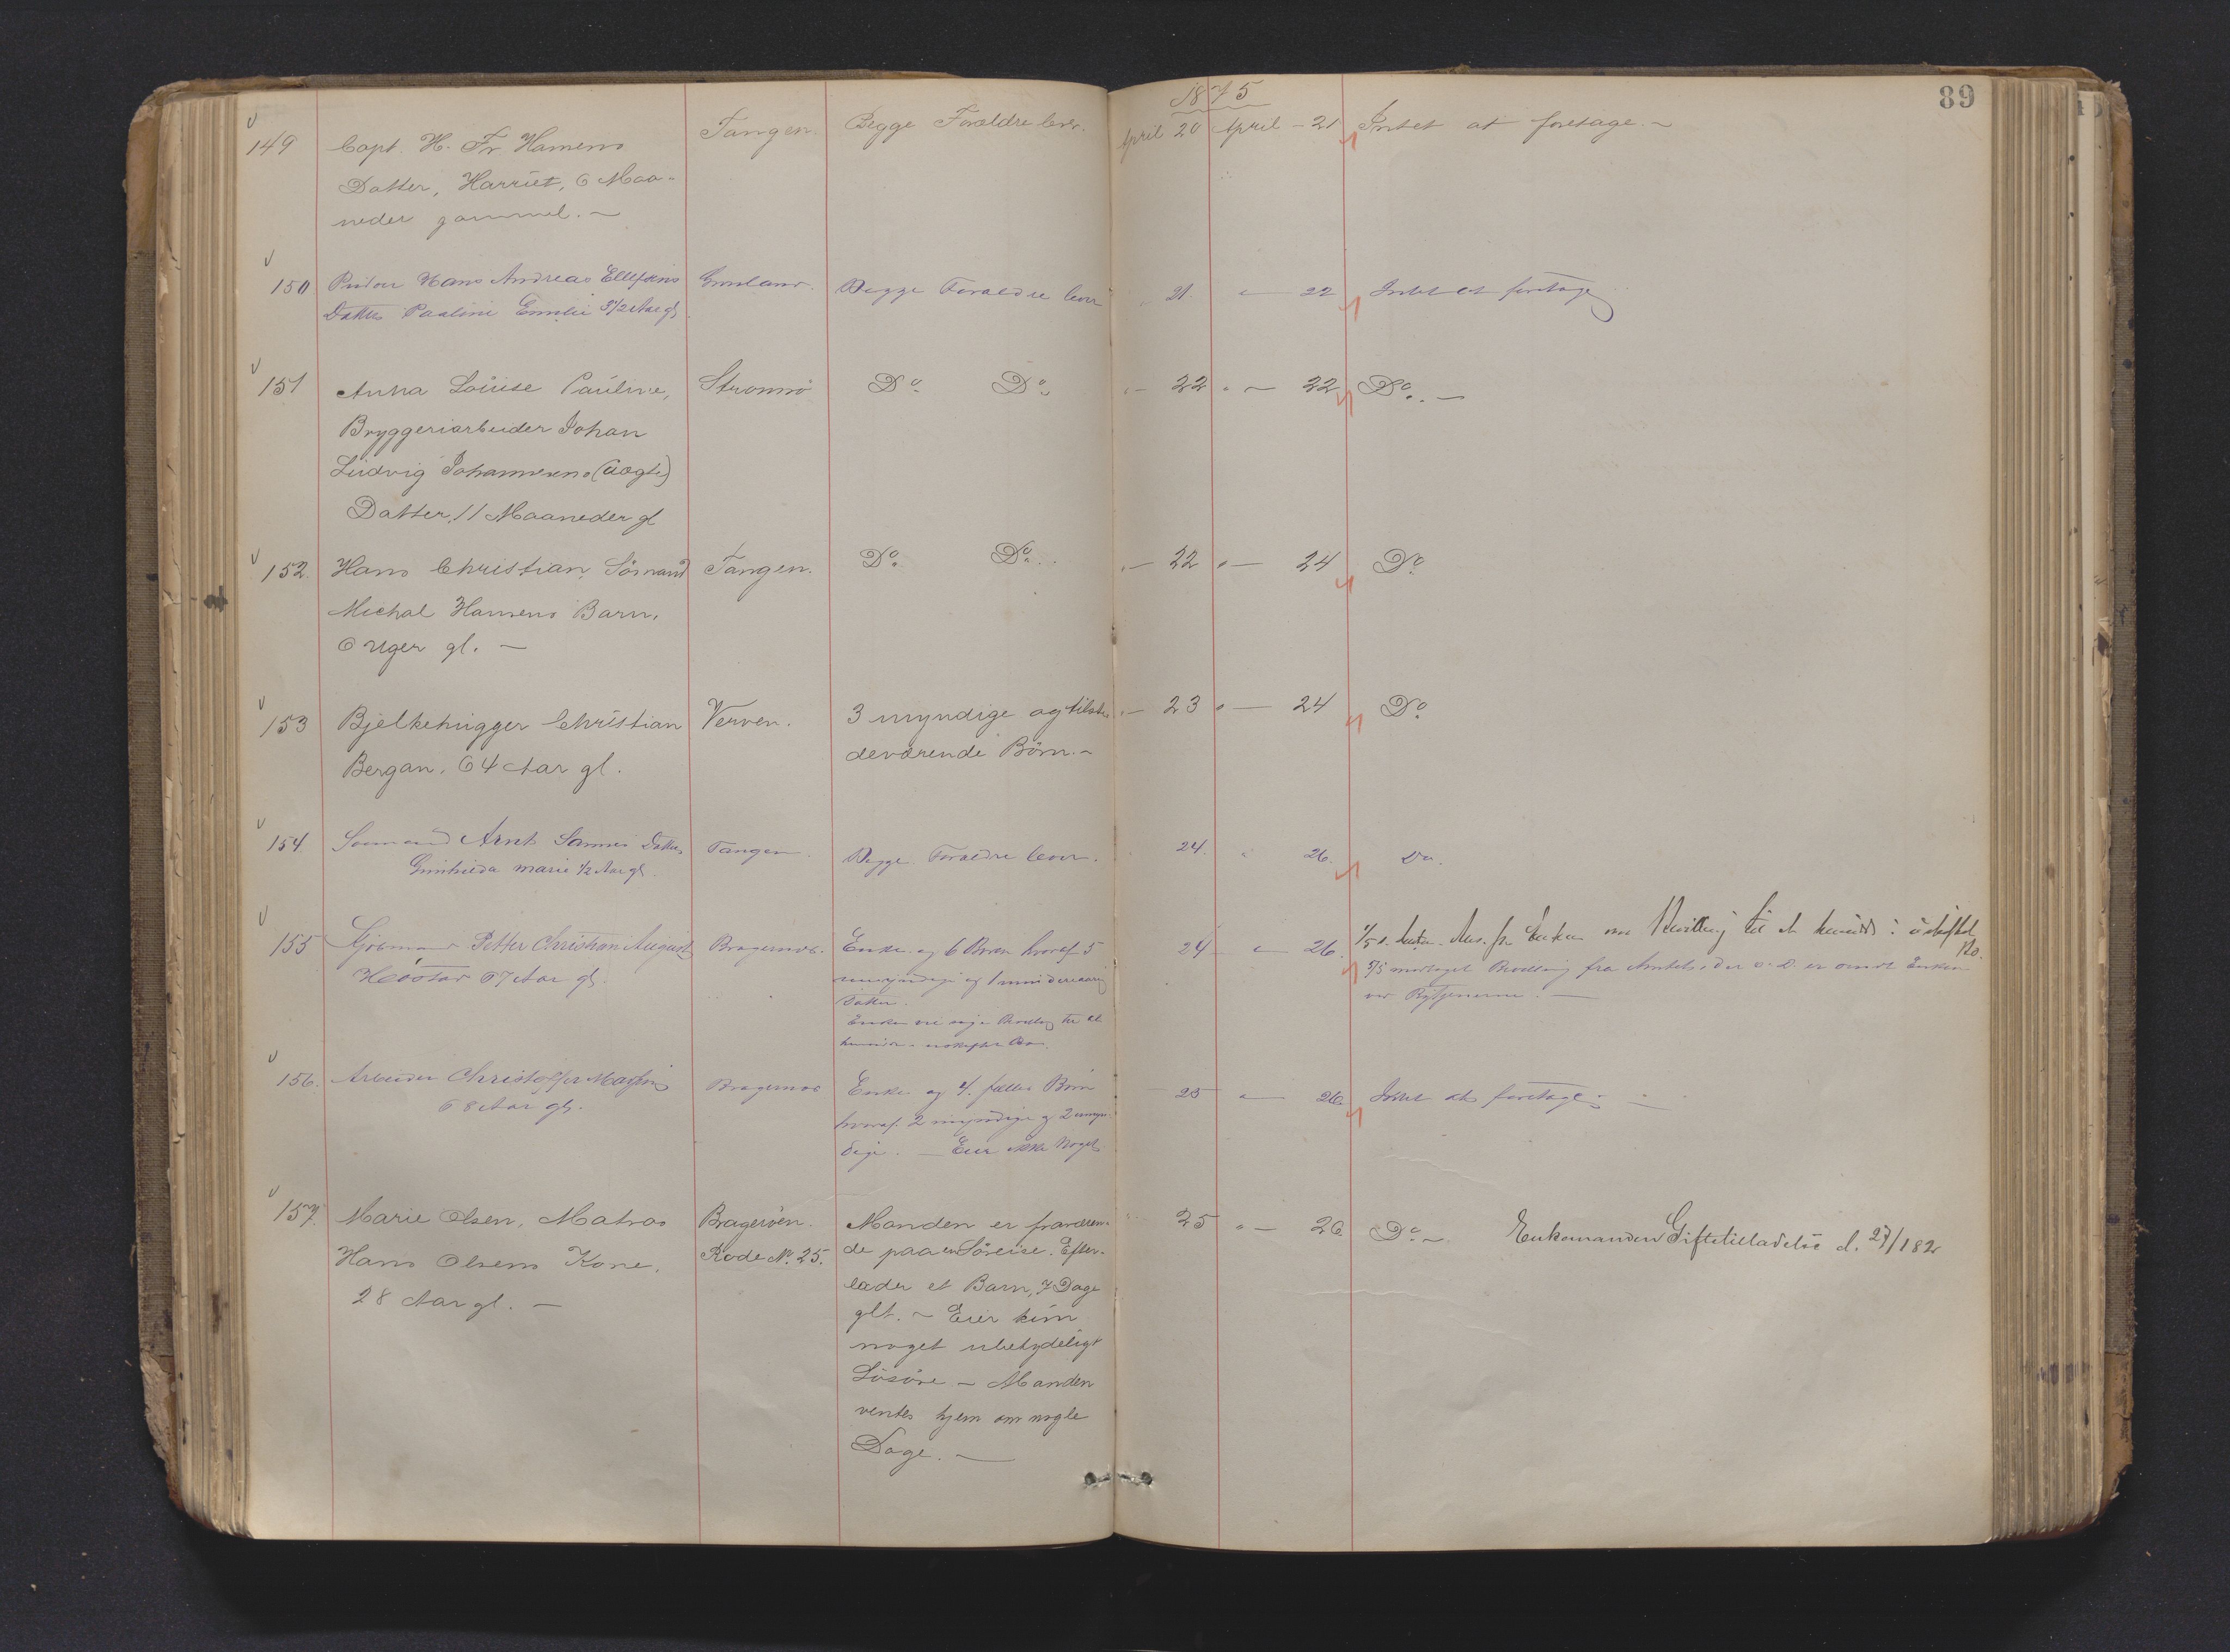 1875
89
149 Capt. H. Fr. Hansens
Datter, Harriet, 6 Maa-
neder gammel. ~
Tangen.
Begge Forældre lever.
April 20 April - 21 Intet at foretage. ~
150 Hans Andreas Ellefsens
Datter Pauline Emilie 3 1/2 Aar gl
Grønland.
Begge Forældre lever
21. " 22 Intet at foretage
151 Anna Louise Pauline,
Bryggeriarbeider Johan
Ludvig Johannesens (uægte)
Datter, 11 Maaneder gl
Strømsö
Do Do
" 22 " - 22 Do. -
152. Hans Christian, Sömand
Michal Hansens Barn,
6 Uger gl. -
Tangen.
Do. Do.
" - 22 " - 24 Do
153 Bjelkehugger Christian
Bergan, 64 Aar gl.
Verven.
3 myndige og tilste-
deværende Börn. ~
" - 23 " - 24 Do
154. Sömand Arnt Datter
marie 1/2 Aar gl.
Tangen.
Begge Forældre lever.
24. " 26. Do.
155 Petter Christian August
67 Aar gl.
Bragernæs.
Enke og 6 Børn hvoraf 5
myndige og 1 mindreaarig
Datter.
Enken vil søge Bevilling til at
hensidde i uskiftet Bo.
24 " 26.
Enken om Bevilling til at hensidde i uskiftet
Bo.
5/5 modtaget Bevilling fra Amtet,
156. Arbeider Christoffer
68 Aar gl.
Bragernæs
Enke og 4 fælles Børn
hvoraf 2 myndige og 2 umyn-
dige. - Eier ikke Noget
25 " 26. Intet at foretage. -
157. Marie Olsen, Matros
Hans Olsens Kone,
28 Aar gl. -
Bragerøen.
Rode No. 25.
Manden er fraværen-
de paa en Söreise. Efter-
lader et Barn, 7 Dage
glt. ~ Eier kun
noget ubetydeligt
Lösöre - Manden
ventes hjem om nogle
Dage. -
25 " - 26 Do ~ Enkemanden Giftetilladelse d. 27/1 82